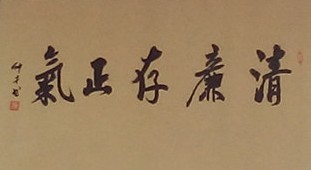 清廉存正氣